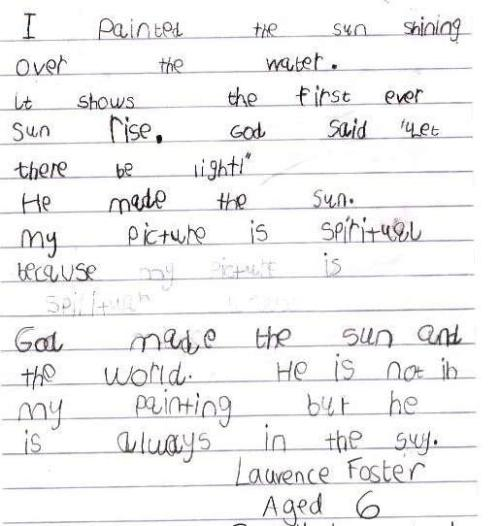 I Painted the sun shining
over the water.
it shows the first ever
sun rise. God said "Let
there be light!"
He made the sun.
my picture is spiritual
because my picture is
spiritual
God made the sun and
the world. He is not in
my painting but he
is always in the sky.
Laurence Foster
Aged 6